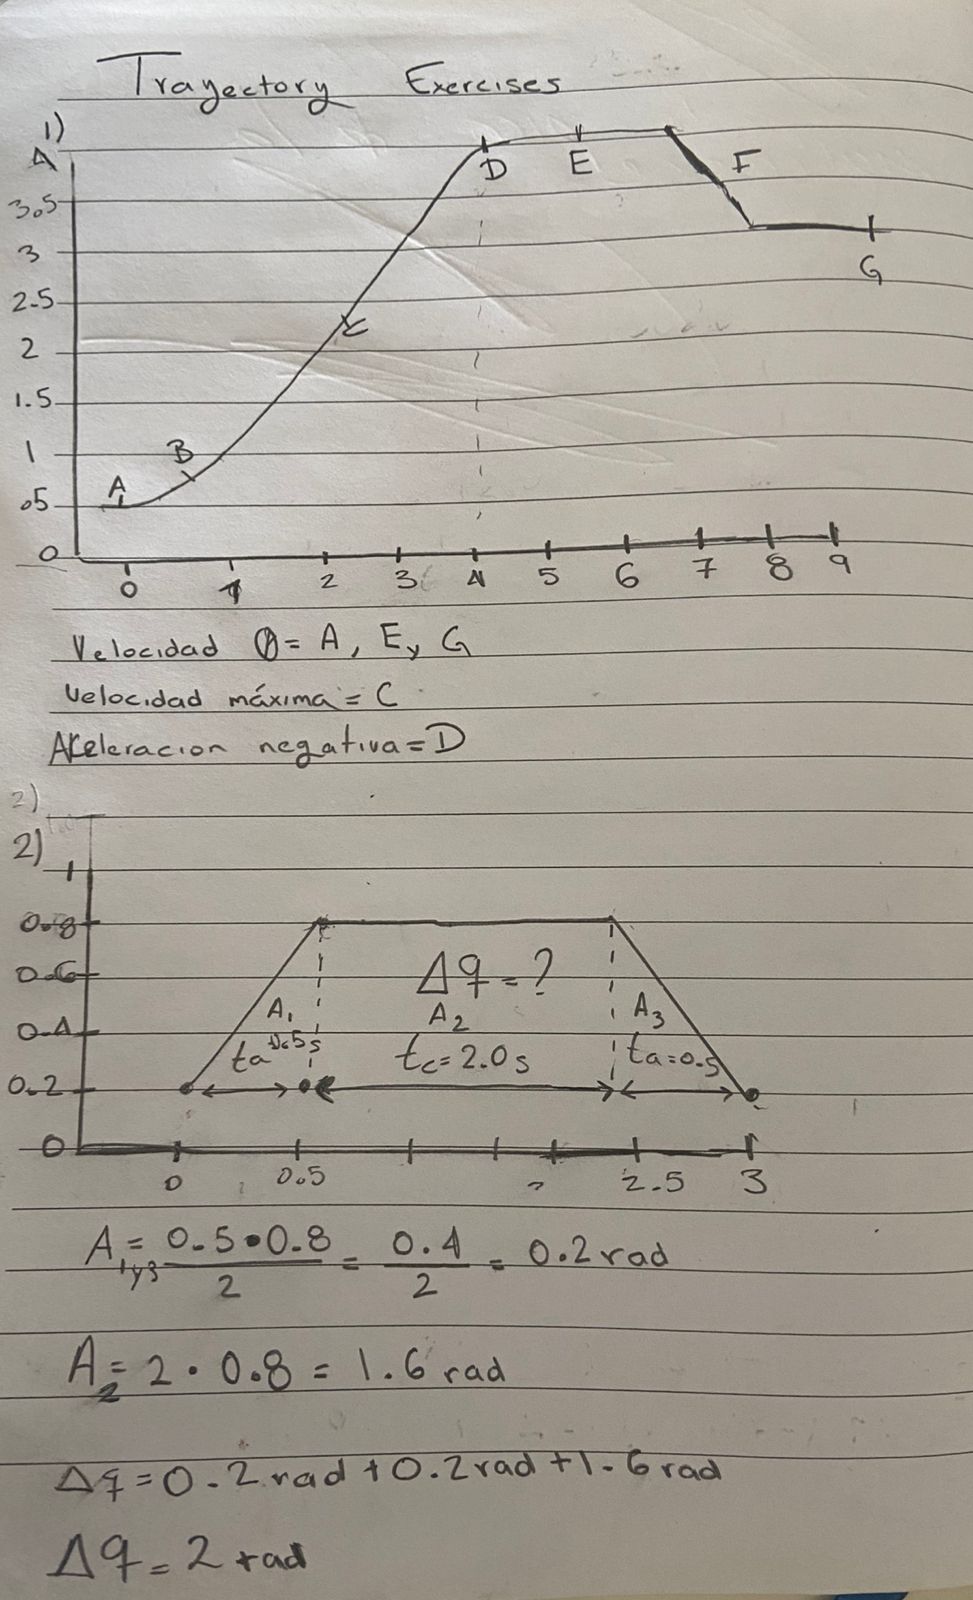 Trayectory Exercises
1)
4
3.5
3
2.5
2
1.5
1
.5
0
A
B
C
D
E
F
G
0 1 2 3 4 5 6 7 8 9
Velocidad 0 = A, E y G
Velocidad máxima = C
Aceleracion negativa = D
2)
2)
1
0.8
0.6
0.4
0.2
0
Δq = ?
A1 A2 A3
ta 0.5s tc = 2.0s ta = 0.5
0 0.5 2.5 3
A1y3 = 0.5 • 0.8 / 2 = 0.4 / 2 = 0.2 rad
A2 = 2 · 0.8 = 1.6 rad
Δq = 0.2 rad + 0.2 rad + 1.6 rad
Δq = 2 rad